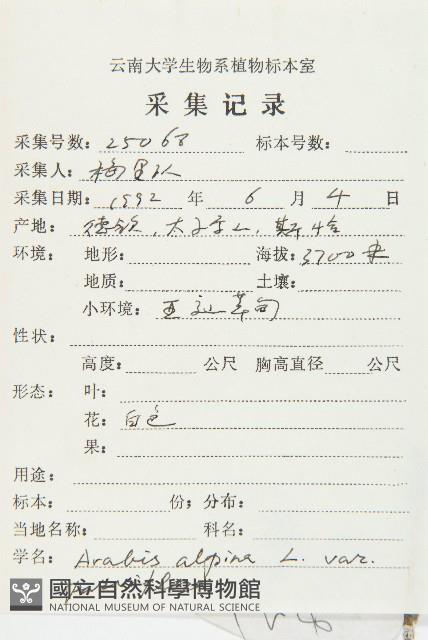 云南大学生物系植物标本室
采集记录
采集号数：25068 标本号数：
采集人：梅里队
采集日期：1992 年 6 月 4 日
产地：德钦，太子雪山，斯恰
环境：地形： 海拔：3700米
地质： 土壤：
小环境：
性状：
高度： 公尺 胸高直径 公尺
形态：叶：
花：白色
果：
用途：
标本： 份；分布：
当地名称： 科名：
学名：Arabis alpina L. var.
國立自然科學博物館
NATIONAL MUSEUM OF NATURAL SCIENCE